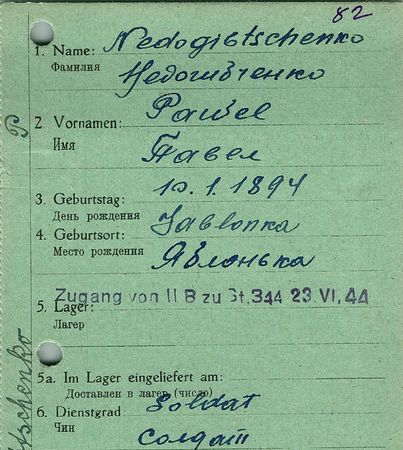 82
1. Name: Nedogibtschenko
Фамилия Недогибченко
2. Vornamen: Pawel
Имя Павел
3. Geburtstag: 10.1.1894
День рождения
4. Geburtsort: Jablonka
Место рождения Яблонька
Zugang von II B zu St. 344 23. VI. 44
5. Lager:
Лагер
5a. Im Lager eingeliefert am:
Доставлен в лагер (число)
6. Dienstgrad: Soldat
Чин солдат
P
tschenko